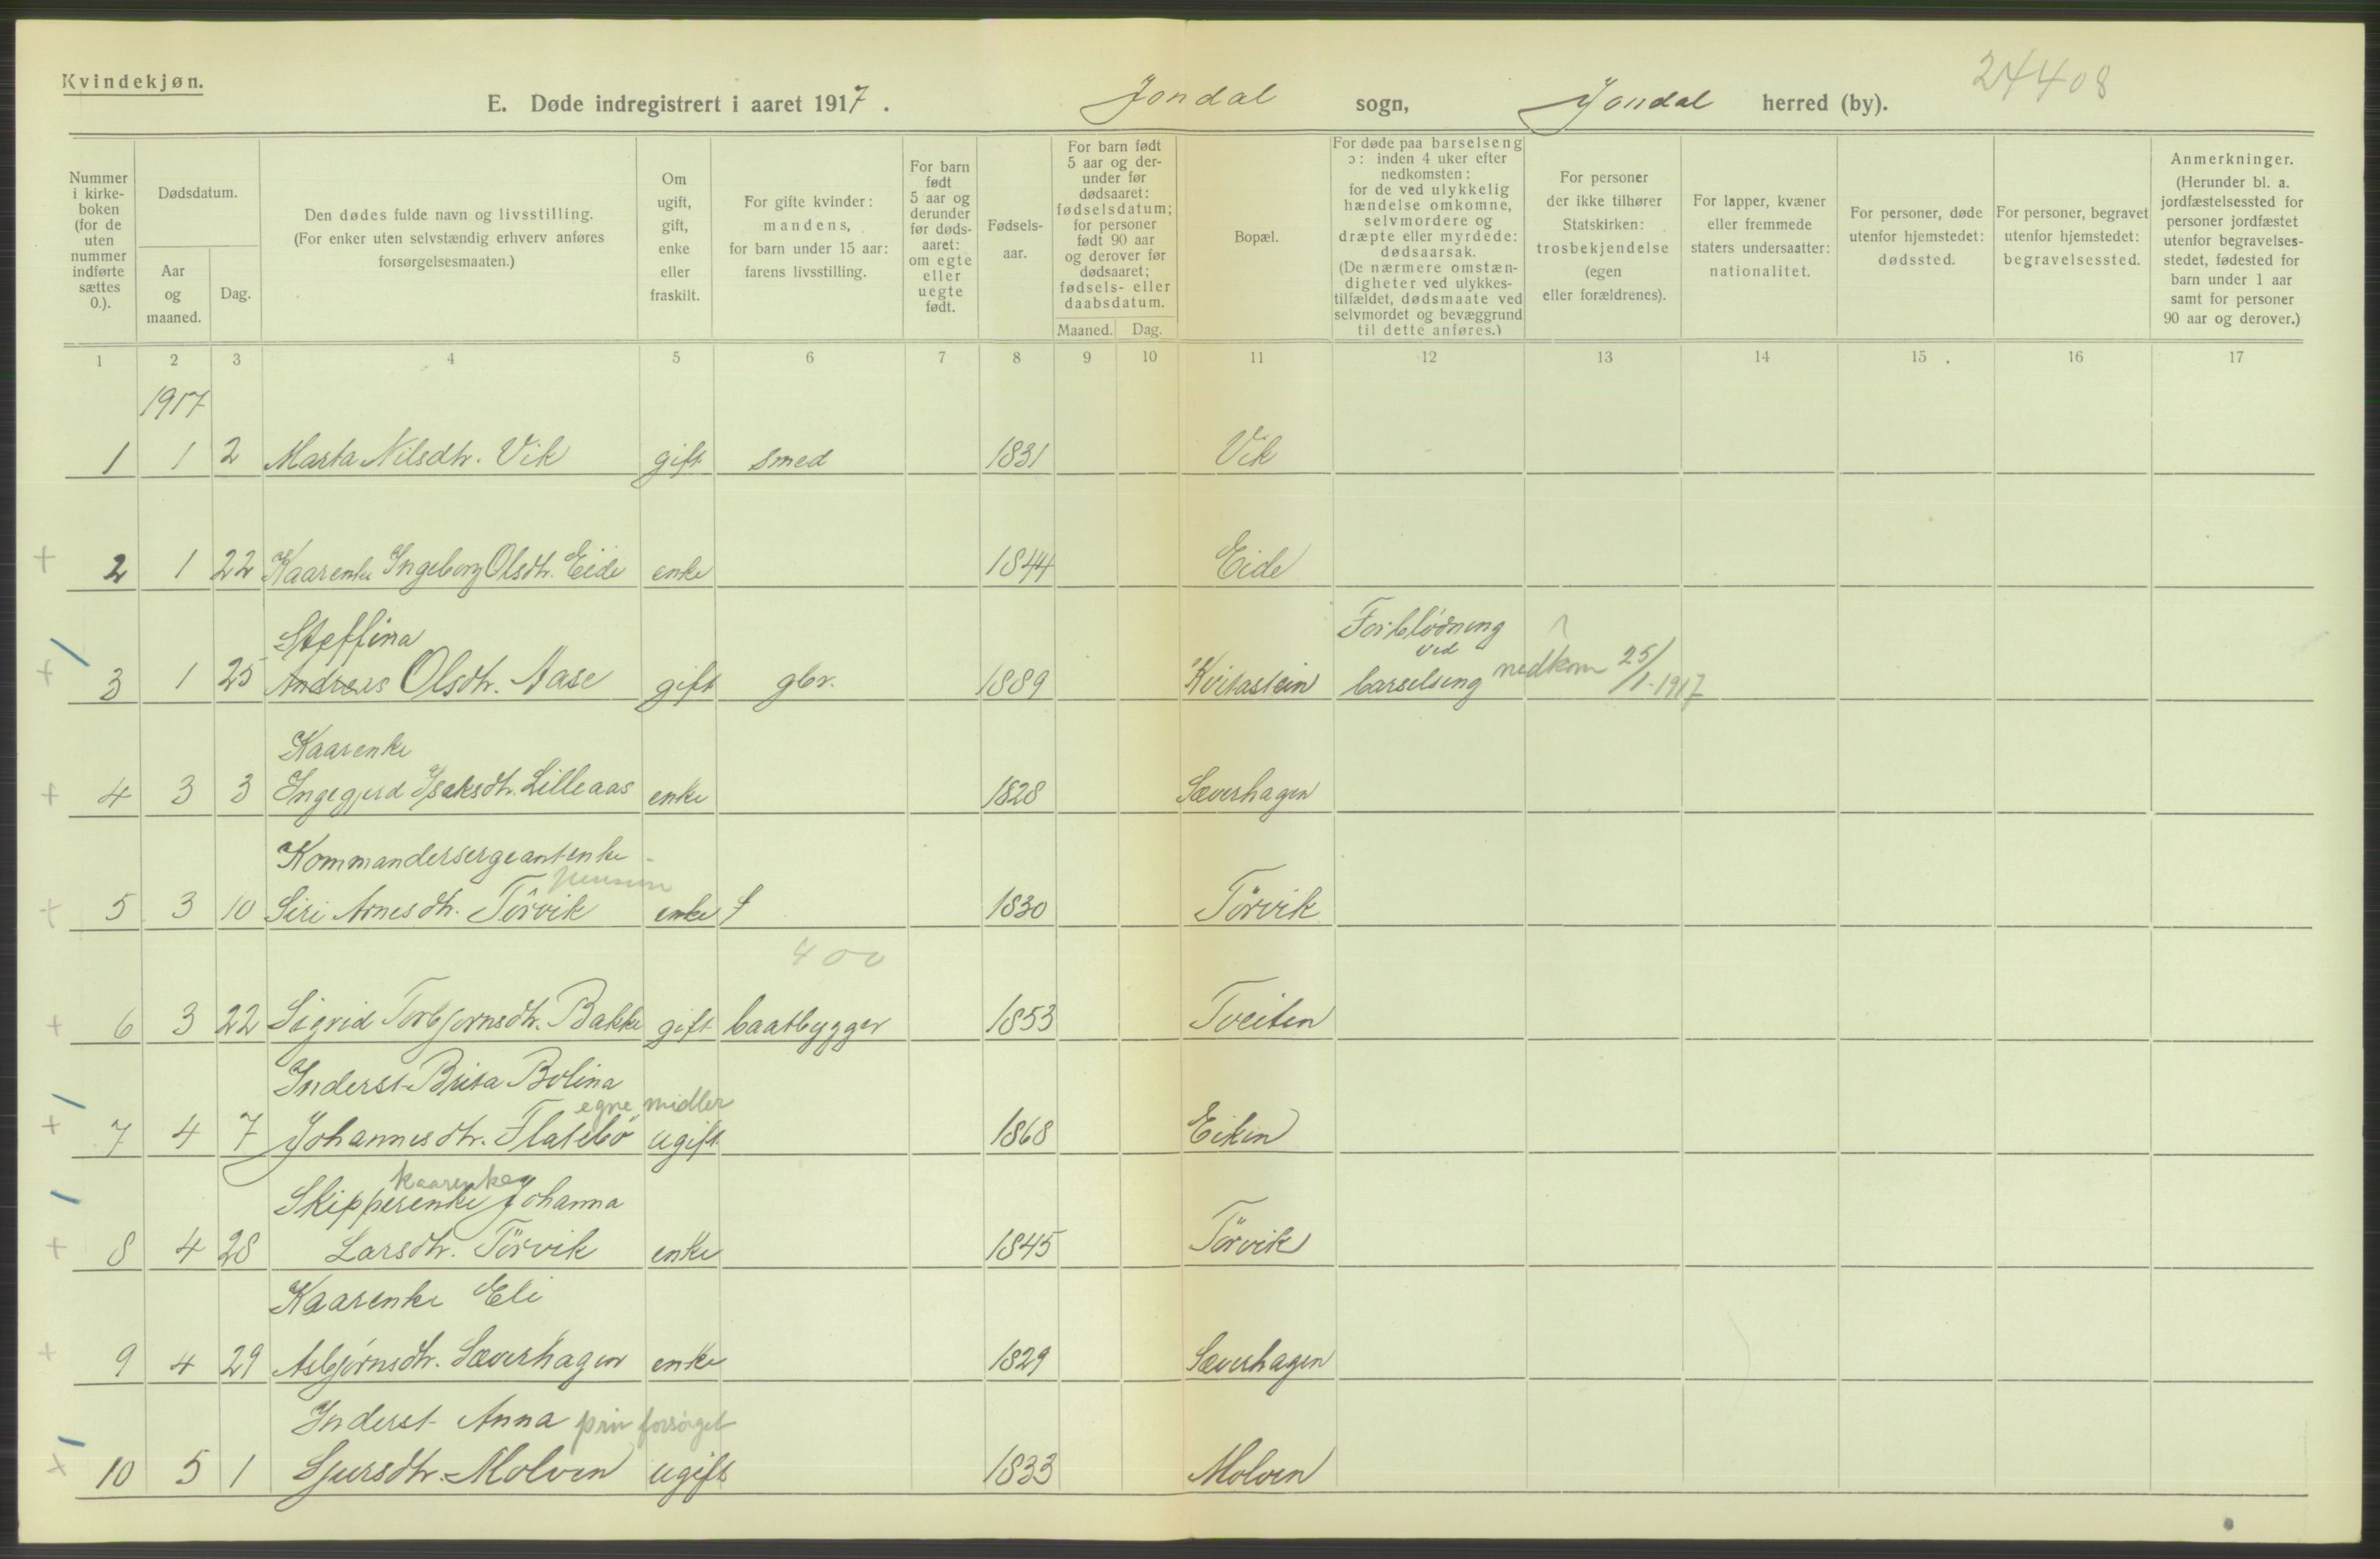 Kvindekjøn.
24408
E. Døde indregistrert i aaret 1917. Jondal sogn, Jondal herred (by).
Nummer i kirke- boken (for de uten nummer indførte sættes 0.).
Dødsdatum.
Aar og maaned.
Dag.
Den dødes fulde navn og livsstilling. (For enker uten selvstændig erhverv anføres forsørgelsesmaaten.)
Om ugift, gift, enke eller fraskilt.
For gifte kvinder: mandens, for barn under 15 aar: farens livsstilling.
For barn født 5 aar og derunder før døds- aaret: om egte eller uegte født.
Fødsels- aar.
For barn født 5 aar og der- under før dødsaaret: fødselsdatum; for personer født 90 aar og derover før dødsaaret; fødsels- eller daabsdatum.
Maaned. Dag.
Bopæl.
For døde paa barselseng ɔ: inden 4 uker efter nedkomsten: for de ved ulykkelig hændelse omkomne, selvmordere og dræpte eller myrdede: dødsaarsak. (De nærmere omstæn- digheter ved ulykkes- tilfældet, dødsmaate ved selvmordet og bevæggrund til dette anføres.)
For personer der ikke tilhører Statskirken: trosbekjendelse (egen eller forældrenes).
For lapper, kvæner eller fremmede staters undersaatter: nationalitet.
For personer, døde utenfor hjemstedet: dødssted.
For personer, begravet utenfor hjemstedet: begravelsessted.
Anmerkninger. (Herunder bl. a. jordfæstelsessted for personer jordfæstet utenfor begravelses- stedet, fødested for barn under 1 aar samt for personer 90 aar og derover.)
1 2 3 4 5 6 7 8 9 10 11 12 13 14 15 16 17
1917
1 1 2 Marta Nilsdtr. Vik gift smed 1831 Vik
+ 2 1 22 Kaarenke Ingeborg Olsdtr. Eide enke 1844 Eide
Steffina Forblödning
ved
+ 3 1 25 Andreas Olsdtr. Aase gift gbr. 1889 Kvitastein barselseng nedkom 25/1-1917
Kaarenke
+ 4 3 3 Ingegjerd Isaksdtr. Lilleaas enke 1828 Sæverhagen
Kommandersergeantenke -
pension
+ 5 3 10 Siri Arnesdtr. Törvik enke f 1830 Törvik
400
+ 6 3 22 Sigrid Torbjørnsdtr. Bakke gift baatbygger 1853 Tveiten
Inderst Brita Bolina
egne midler
+ 7 4 7 Johannesdtr. Flatebö ugift 1868 Eikin
kaarenke
Skipperenke Johanna
+ 8 4 28 Larsdtr. Törvik enke 1845 Törvik
Kaarenke Eli
+ 9 4 29 Asbjørnsdtr. Sæverhagen enke 1829 Sæverhagen
Inderst Anna priv forsørget
+ 10 5 1 Sjursdtr. Molven ugift 1833 Molven